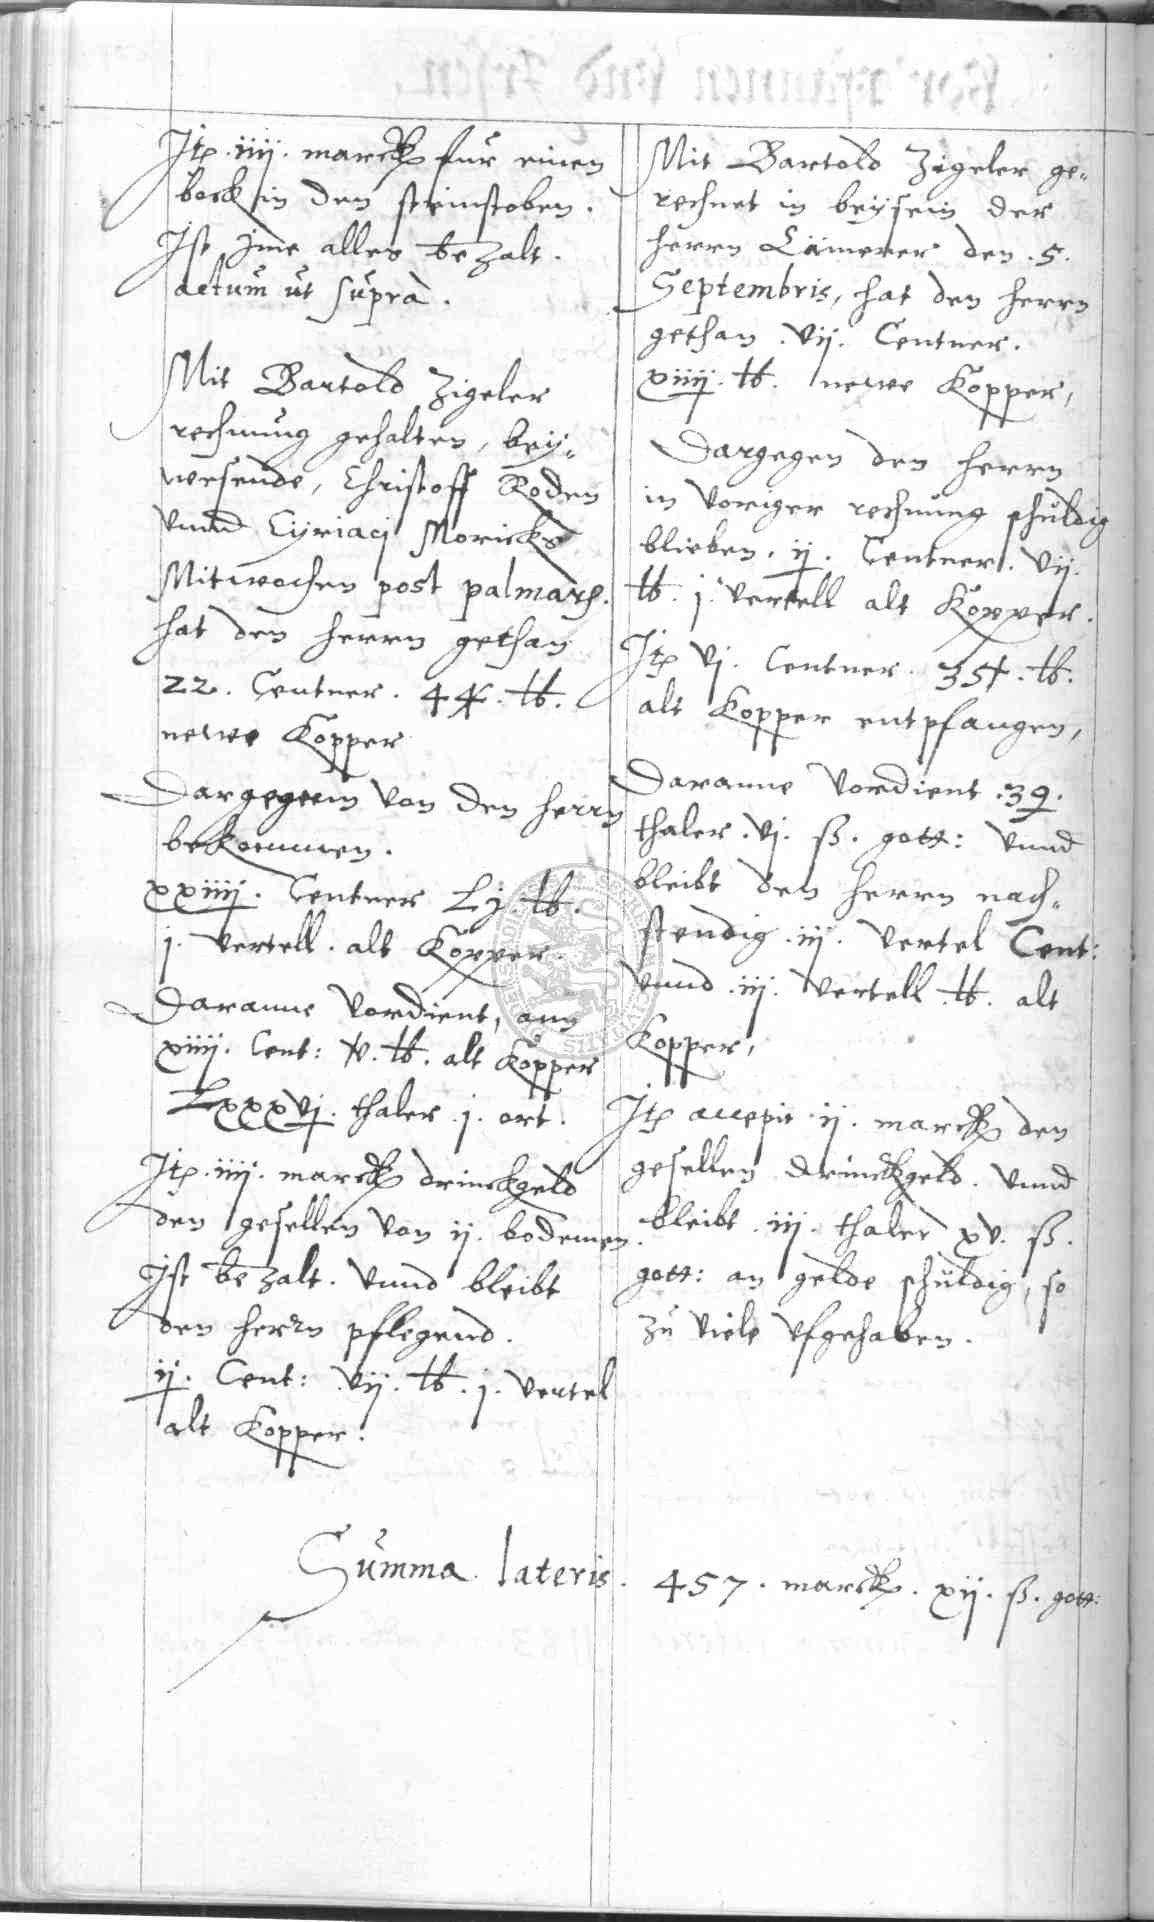 Itē. iiij. marck für einen
bock in den steinstoben.
Ist jme alles bezalt.
actum ut supra.
Mit Bartold Zigeler
rechnung gehalten, bey-
wesende, Christoff Roden
vnnd Cyriaci Moricks
Mitwochen post palmarū.
hat den herrn gethan
22. Centner. 44. ℔.
newe Kopper
Dargegenn von den herrn
bekommen.
xxiiij. Centner Lj. ℔.
j. vertell. alt Kopper.
Daranne vordient, ann
xiiij. Cent: v. ℔. alt Kopper
Lxxxvj. thaler. j. ort.
Itē. iiij. marck drinckgeld
den gesellen von ij. bodemen.
Ist bezalt. vnnd bleibt
den herrn pflegend.
ij. Cent: vij. ℔. j. vertel
alt Kopper.
Mit Bartold Zigeler ge-
rechnet in beysein der
herrn Cämerer den. 5.
Septembris, hat den herrn
gethan. vij. Centner.
xiiij. ℔. newe Kopper,
Dargegen den herrn
in voriger rechnung schuldig
blieben. ij. Centner. vij.
℔. j. vertell alt Kopper.
Itē vj. Centner. 354. ℔.
alt Kopper entpfangen,
Daranne vordient. 39.
thaler. vj. ß. gott: vnnd
bleibt den herrn nach-
stendig. iij. vertel Cent:
vnnd. iij. vertell. ℔. alt
Kopper,
Itē accepit. ij. marck den
gesellen drinckgeld. vnnd
bleibt. iij. thaler xv. ß.
gott: an gelde schuldig, so
zu viele vfgehaben.
Summa lateris. 457. marck. xij. ß. gott: